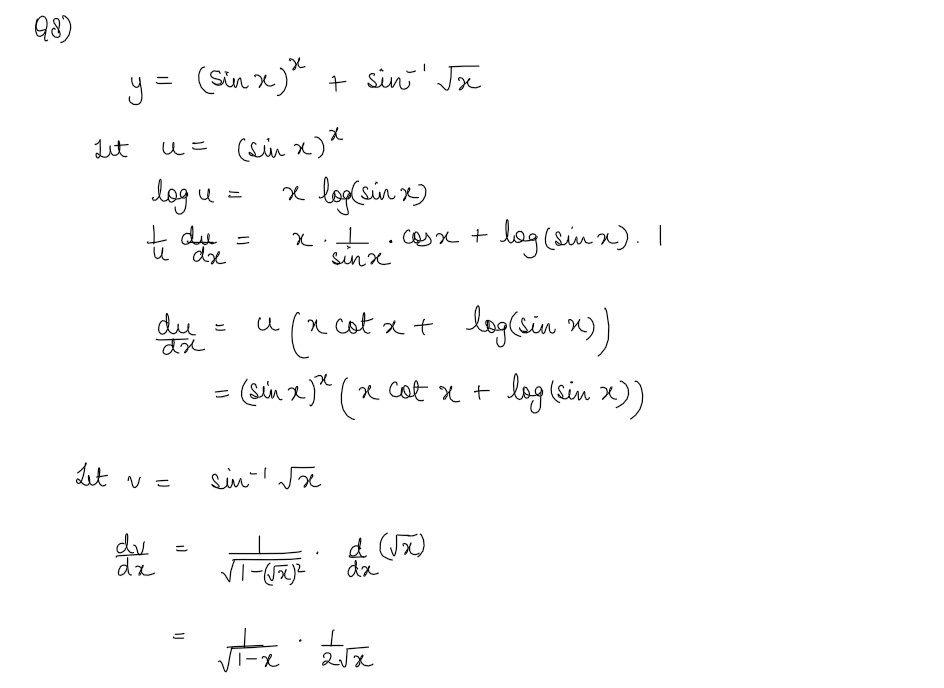 Q8)
y = (sin x)^x + sin⁻¹ √x
Let u = (sin x)^x
log u = x log(sin x)
1/u du/dx = x · 1/sin x · cos x + log(sin x) . 1
du/dx = u (x cot x + log(sin x))
= (sin x)^x (x cot x + log(sin x))
Let v = sin⁻¹ √x
dv/dx = 1/√(1-(√x)²) · d/dx (√x)
= 1/√(1-x) · 1/2√x